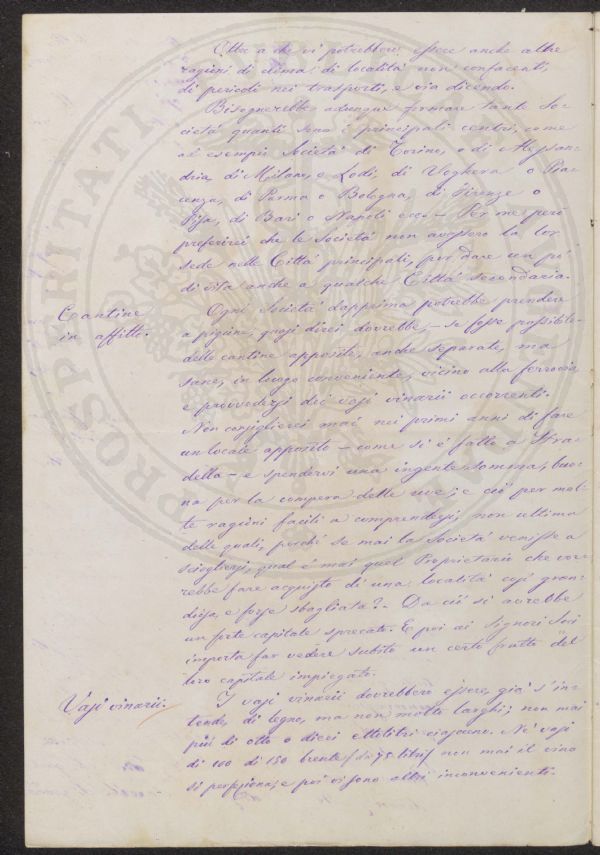 Oltre a che vi potrebbero essere anche altre
ragioni di clima, di località non confacenti,
di pericoli nei trasporti, e via dicendo.
Bisognerebbe adunque formare tante So-
cietà quanti sono i principali centri, come
ad esempio Società di Torino, o di Alessan-
dria, di Milano, e Lodi, di Voghera o Pia-
cenza, di Parma o Bologna, di Firenze o
Pisa, di Bari o Napoli ecc. — Per me però
preferirei che le Società non avessero la lor
sede nelle Città principali, per dare un pò
di vita anche a qualche Città secondaria.
Cantine
in affitto.
Ogni Società dapprima potrebbe prendere
a pigione, quasi direi dovrebbe, — se fosse possibile —
delle cantine apposite, anche separate, ma
sane, in luogo conveniente, vicino alla ferrovia,
e provvedersi dei vasi vinarii occorrenti.
Non consiglierei mai nei primi anni di fare
un locale apposito — come si è fatto a Stra-
della — e spendervi una ingente somma, buo-
na per la compera delle uve; e ciò per mol-
te ragioni facili a comprendersi, non ultima
delle quali, perché se mai la Società venisse a
sciogliersi, qual è mai quel Proprietario che vor-
rebbe fare acquisto di una località così gran-
diosa, e forse sbagliata? — Da ciò si avrebbe
un forte capitale sprecato. E poi ai Signori Soci
importa far vedere subito un certo frutto del
loro capitale impiegato.
Vasi vinarii.
I vasi vinarii dovrebbero essere, già s'in-
tende, di legno, ma non molto larghi; non mai
più di otto o dieci ettolitri ciascuno. Nei vasi
di 100 di 150 brente (da 75 litri) non mai il vino
si perfeziona, e poi vi sono altri inconvenienti.
PROSPERITATI